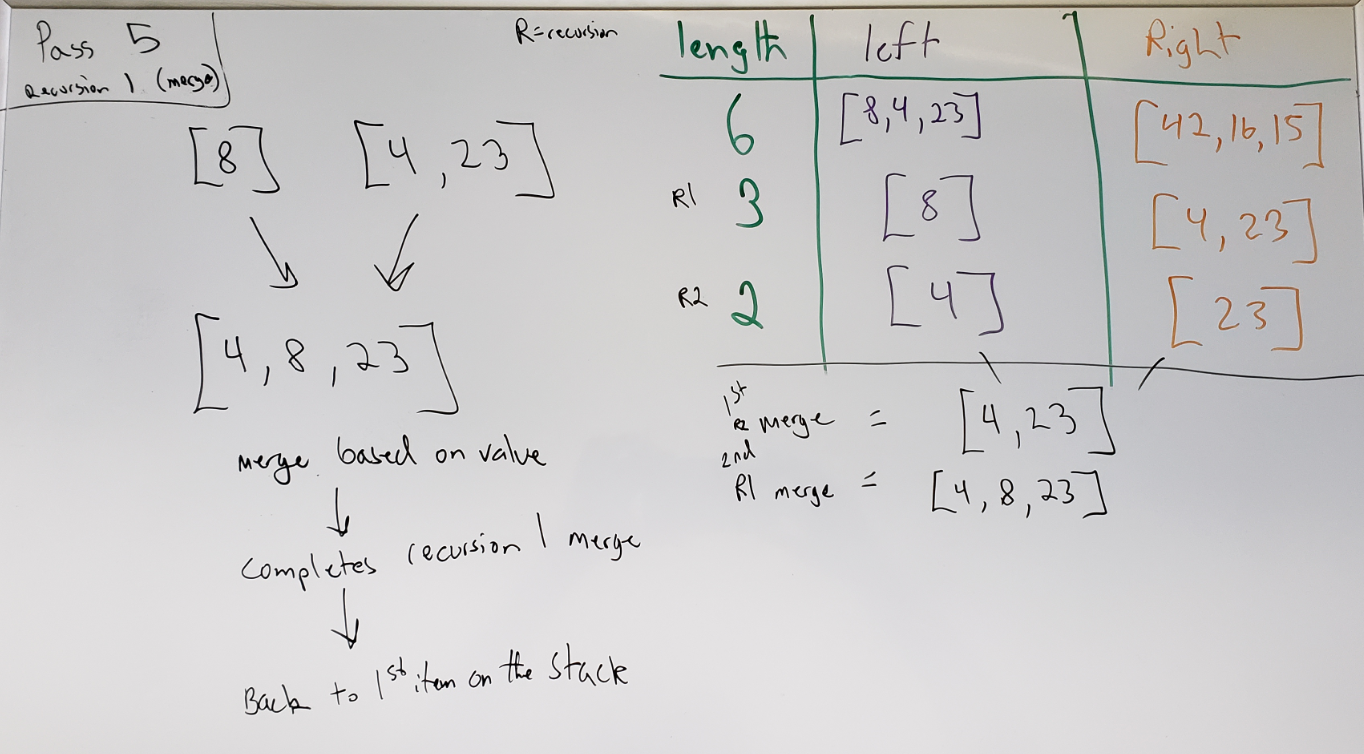 Pass 5
Recursion 1 (merge)
[8] [4,23]
[4,8,23]
merge based on value
Completes recursion 1 merge
Back to 1st item on the stack
R=recursion
length left Right
6 [8,4,23] [42,16,15]
R1 3 [8] [4,23]
R2 2 [4] [23]
1st
R2 merge = [4,23]
2nd
R1 merge = [4,8,23]